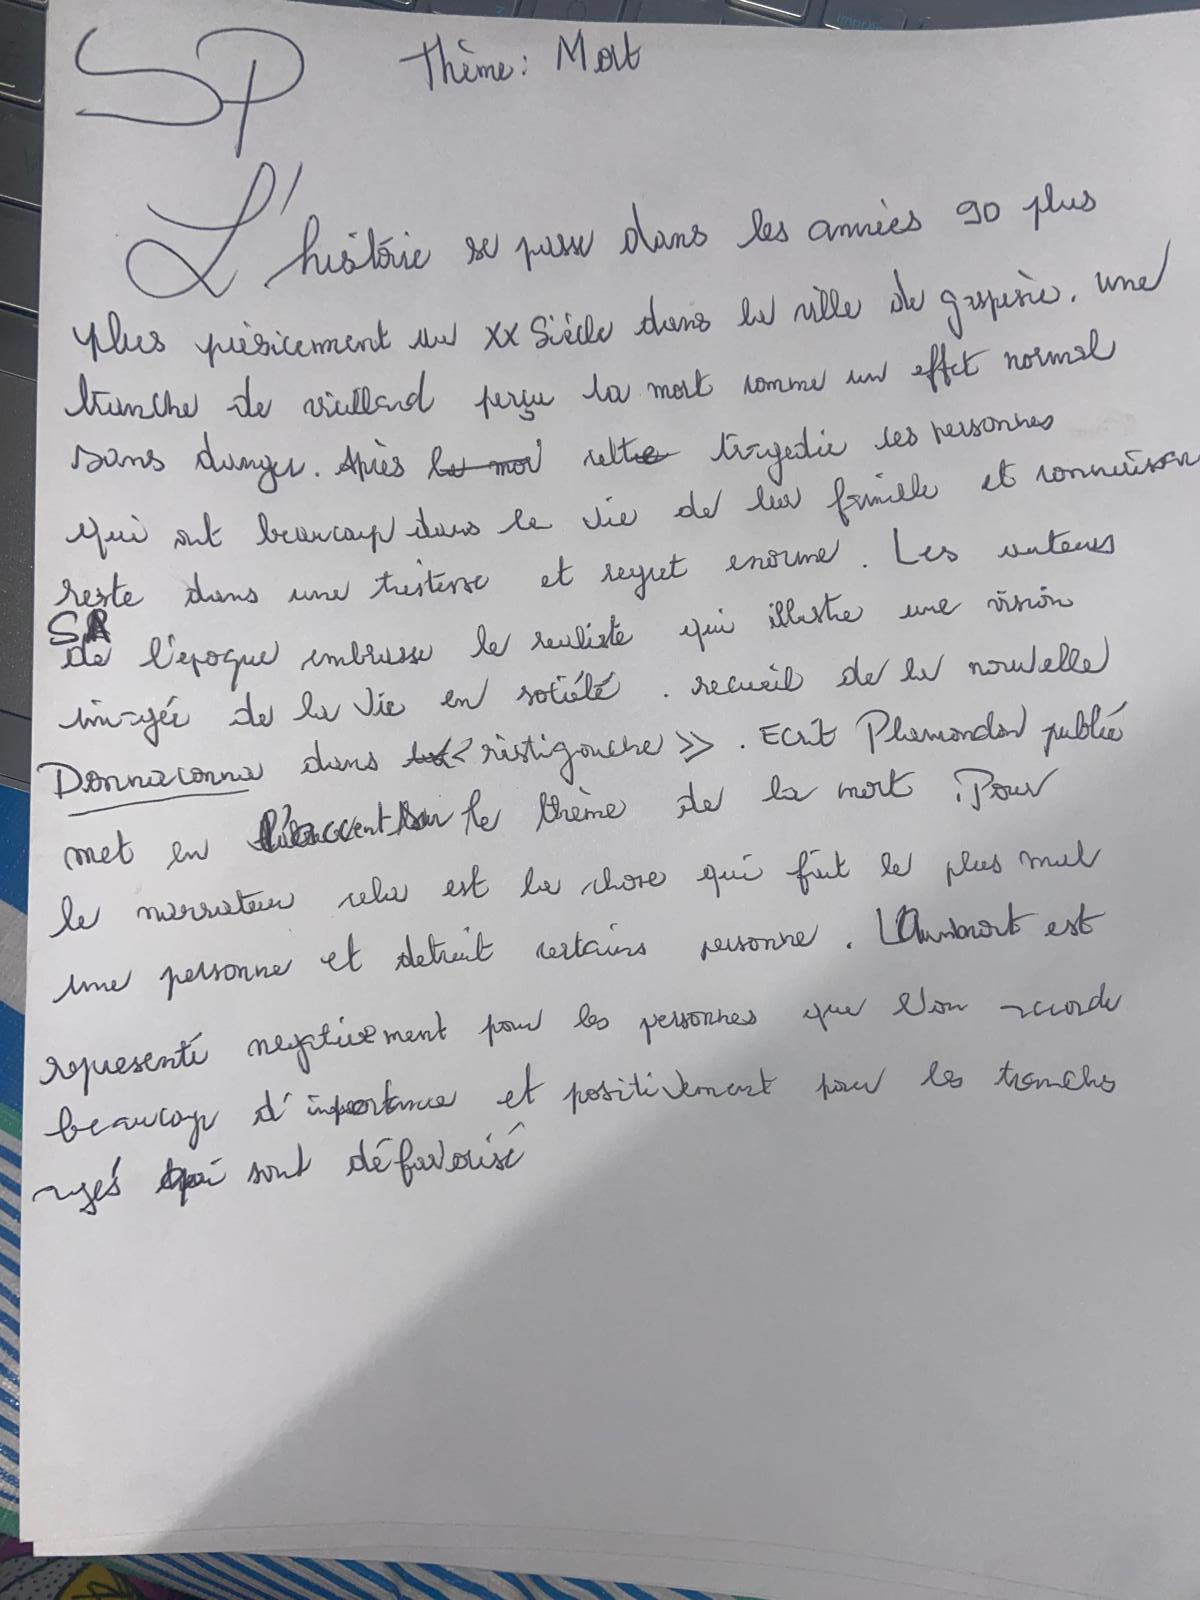 SP Thème : Mort
L'histoire se passe dans les années 90 plus
plus présicemment au XX Siècle dans la ville de gaspésie. une
tranche de viellard perçu la mort comme un effet normal
sans danger. Après le mor cette tragedie les personnes
qui ont beaucoup dans la vie de leur famille et
reste dans une tristesse et regret enorme. Les auteurs
SA
de l'epoque embrasse le realiste qui illustre une vision
imagée de la vie en société. recueil de la nouvelle
Donnaconna dans « ristigouche ». Ecrit Plamondon publié
met en l'accent sur le thème de la mort. Pour
le narrateur cela est la chose qui fait le plus mal
une personne et detruit certains personne. La mort est
representé negativement pour les personnes que l'on accorde
beaucoup d'importance et positivement pour les tranches
agés qui sont défavorisé